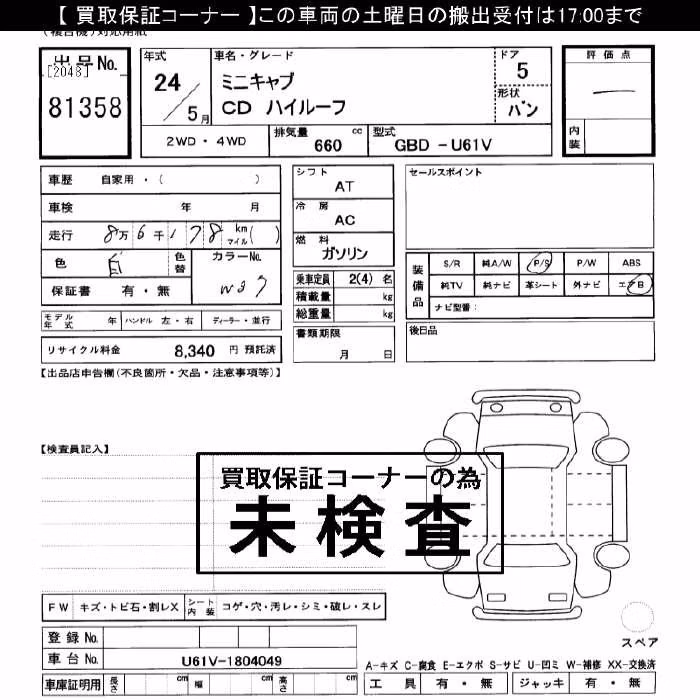 【 買取保証コーナー 】この車両の土曜日の搬出受付は17:00まで
(複合機)対応用紙
出品No.
[2048]
81358
年式
24/5月
車名・グレード
ミニキャブ
CD ハイルーフ
ドア
5
形状
バン
評価点
―
内装
2WD・4WD
排気量 660 cc
型式 GBD - U61V
車歴 自家用・( )
車検 年 月
走行 8万6千178km マイル( )
色 白 色替 カラーNo. W37
保証書 有・無
モデル年式 年 ハンドル 左・右 ディーラー・並行
リサイクル料金 8,340 円 預託済
シフト
AT
冷房
AC
燃料
ガソリン
乗車定員 2(4) 名
積載量 kg
総重量 kg
書類期限
月 日
セールスポイント
装備品
S/R 純A/W P/S P/W ABS
純TV 純ナビ 革シート 外ナビ エアB
ナビ型番:
後日品
【出品店申告欄(不良箇所・欠品・注意事項等)】
【検査員記入】
買取保証コーナーの為
未検査
FW キズ・トビ石・割レX シート内装 コゲ・穴・汚レ・シミ・破レ・スレ
登録No.
車台No. U61V-1804049
車庫証明用 長さ cm 幅 cm 高さ cm
スペア
A-キズ C-腐食 E-エクボ S-サビ U-凹ミ W-補修 XX-交換済
工具 有・無 ジャッキ 有・無